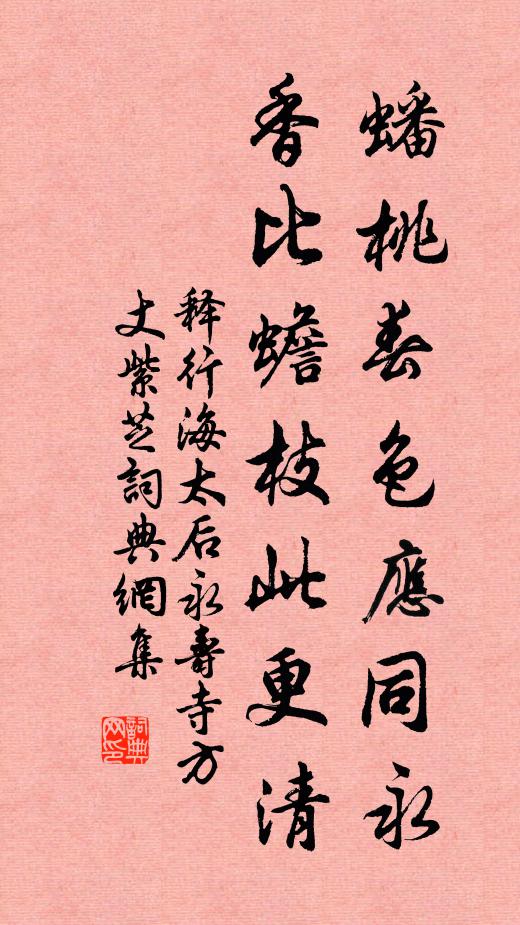 蟠桃春色應同永
香比蟾枝此更清
释行海太后永壽寺方
丈紫芝詞典網集
詞典网印